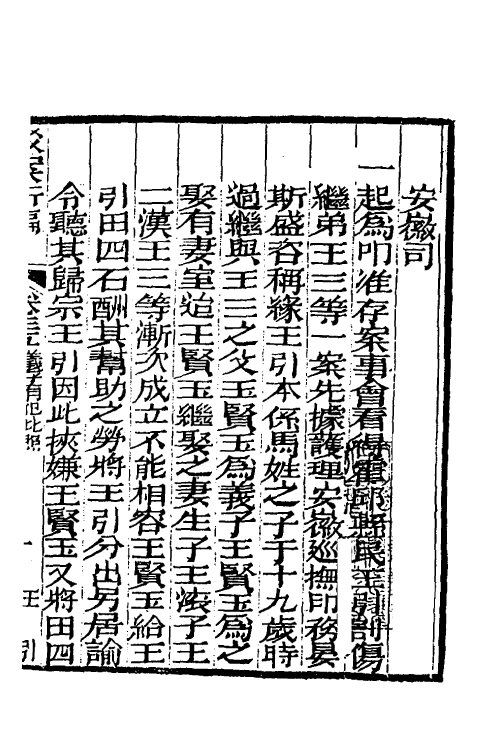 安徽司
一起為叩准存案事會看得霍邱縣民王引割傷
繼弟王三等一案先據護理安徽巡撫印務晏
斯盛咨稱緣王引本係馬姓之子于十九歲時
過繼與王三之父王賢玉為義子王賢玉為之
娶有妻室迨王賢玉繼娶之妻生子王滾子王
二漢王三等漸次成立不能相容王賢玉給王
引田四石酬其幫助之勞將王引分出另居諭
令聽其歸宗王引因此挾嫌王賢玉又將田四
駁案新編 卷三五 義子有犯比照 一 王引